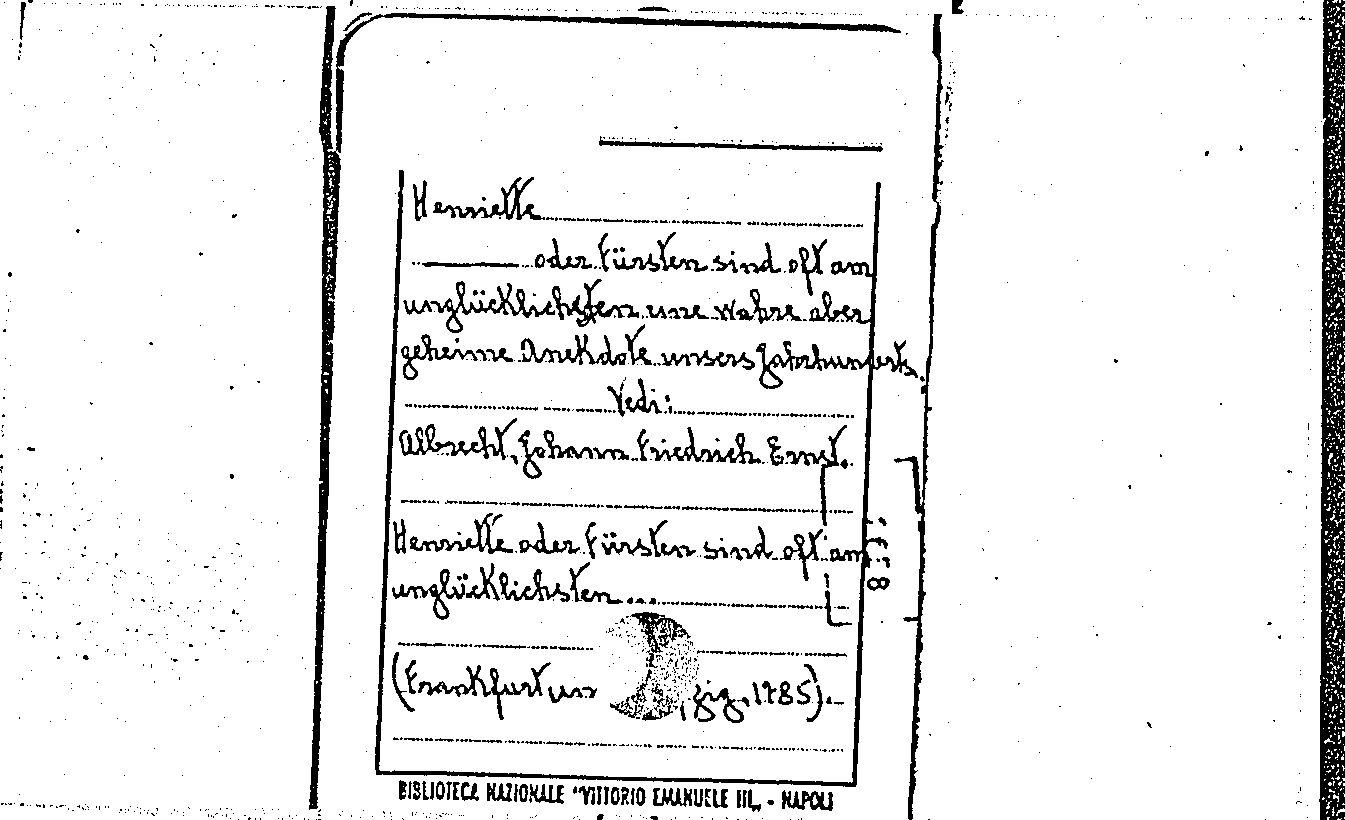 Henriette
——— oder Fürsten sind oft am
unglücklichsten eine wahre aber
geheime Anekdote unsers Jahrhunderts.
Vedi:
Albrecht, Johann Friedrich Ernst.
Henriette oder Fürsten sind oft am
unglücklichsten...
(Frankfurt un zig, 1785).
BIBLIOTECA NAZIONALE "VITTORIO EMANUELE III„ - NAPOLI